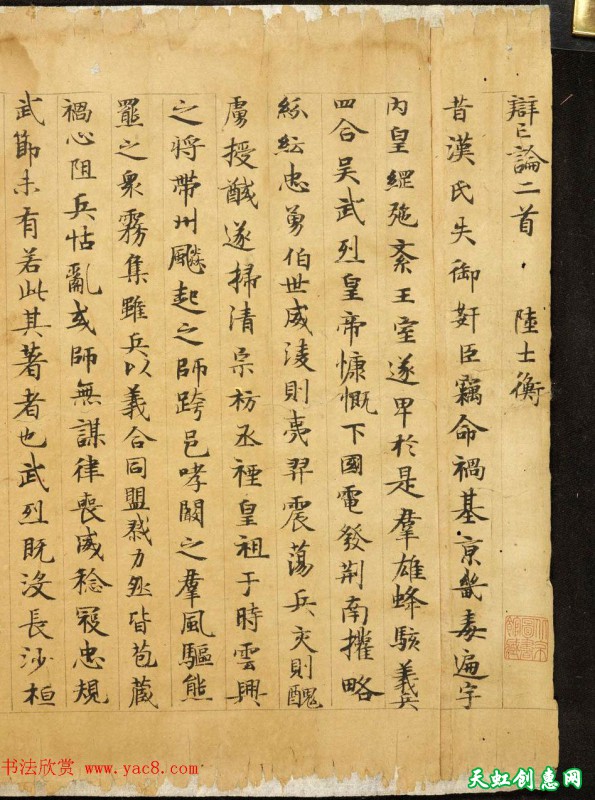 辯亡論二首 陸士衡
昔漢氏失御姧臣竊命禍基京畿毒遍宇
內皇綱弛紊王室遂卑於是羣雄蜂駭義兵
四合吴武烈皇帝慷慨下國電發荆南攉略
紛紜忠勇伯世威淩則夷羿震蕩兵交則醜
虜授馘遂掃清宗枋烝禋皇祖于時雲興
之將帶州飈起之師跨邑哮闞之羣風驅熊
羆之衆霧集雖兵以義合同盟戮力然皆苞藏
禍心阻兵怙亂或師無謀律喪威稔寇忠規
武節未有若此其著者也武烈既沒長沙桓
书法欣赏 www.yac8.com
天虹创意网